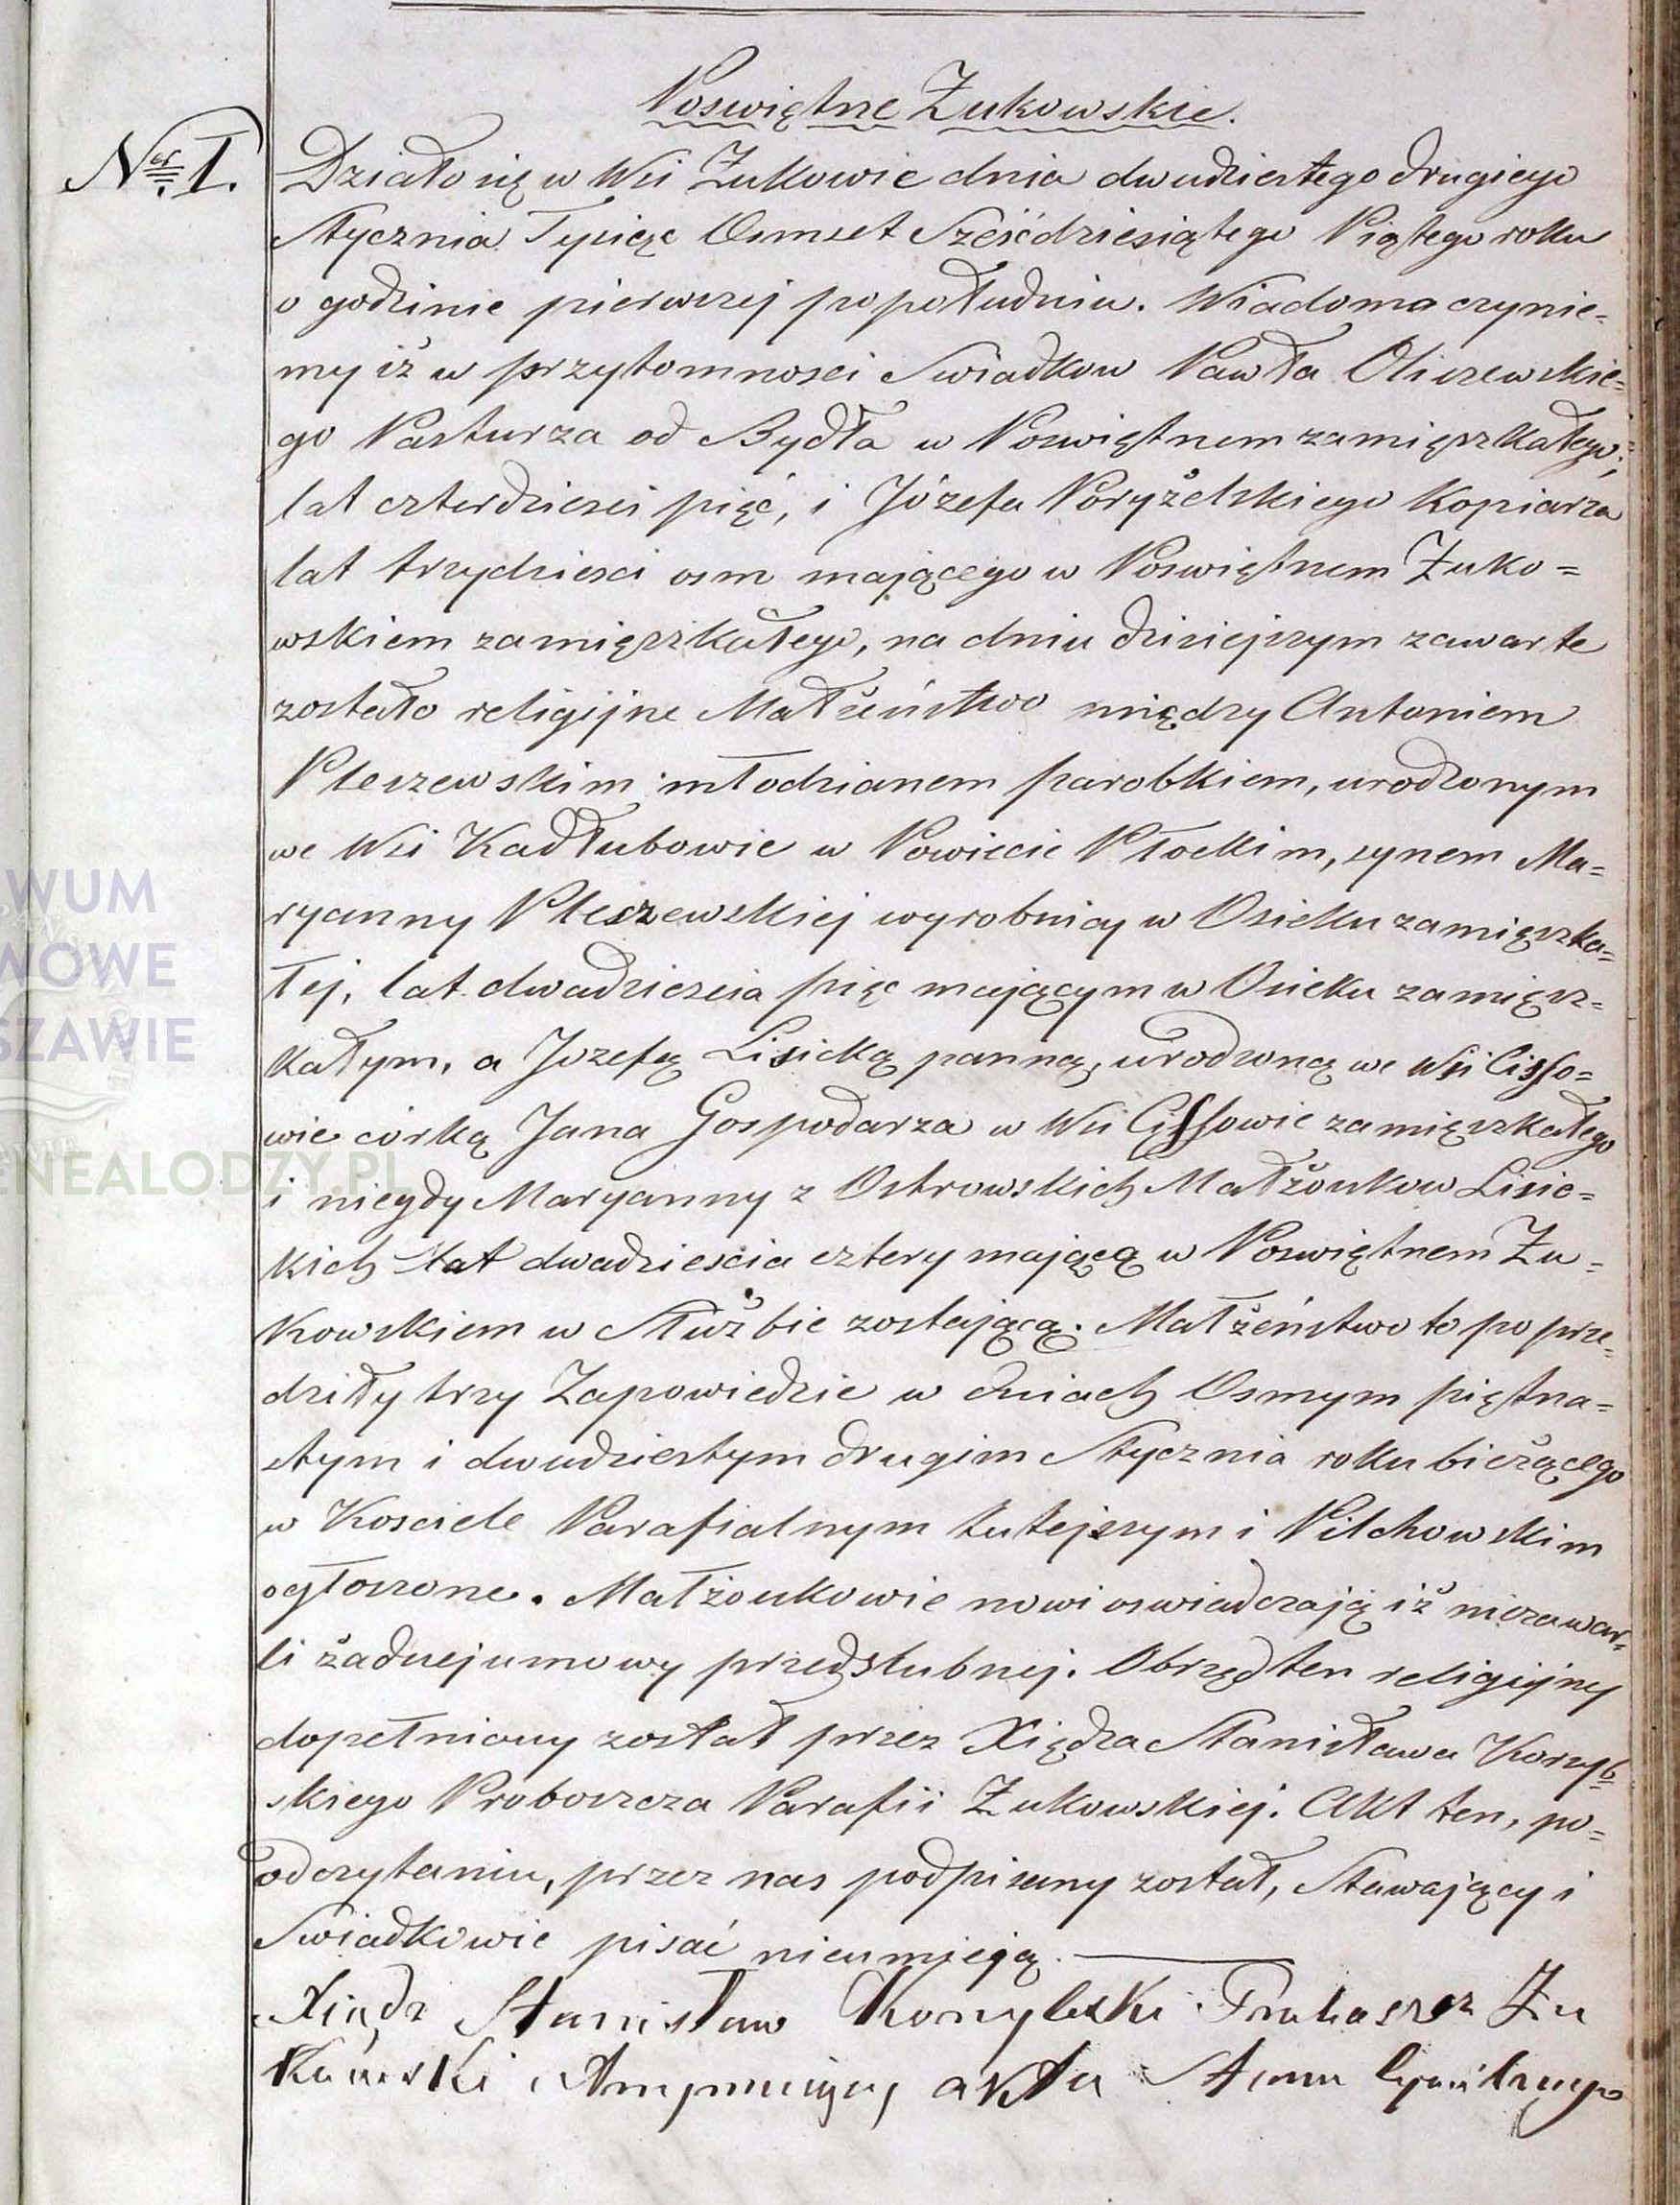 Poswiętne Żukowskie.
Nr 1. Działo się w Wsi Żukowie dnia dwudziestego drugiego
Stycznia Tysiąc Osmset Sześćdziesiątego Piątego roku
o godzinie pierwszej popołudniu. Wiadomo czynie=
my iż w przytomnosci Swiadkow Pawła Oliszewskie=
go Pasturza od Bydła w Poswiętnem zamięszkałego,
lat czterdziesci pięć, i Józefa Poryżelskiego Kopiarza
lat trzydziesci osm mającego w Poswiętnem Żuko=
wskiem zamięszkałego, na dniu dzisiejszym zawarte
zostało religijne Małżeństwo między Antoniem
Pleszewskim młodzianem parobkiem, urodzonym
we Wsi Kadłubowie w Powiecie Płockim, synem Ma=
ryanny Pleszewskiej wyrobnicy w Osieku zamięszka=
łej, lat dwadziescia pięc mającym w Osieku zamięsz=
kałym, a Jozefą Lisicką panną, urodzoną we Wsi Cisso=
wie córką Jana Gospodarza w Wsi Cissowie zamięszkałego
i niegdy Maryanny z Ostrowskich Małżonkow Lisic=
kich lat dwadziescia cztery mającą w Poswiętnem Żu=
kowskiem w Służbie zostającą. Małżeństwo to poprze=
dziły trzy Zapowiedzie w dniach Osmym piętna=
stym i dwudziestym drugim Stycznia roku bieżącego
w Kosciele Parafialnym tutejszym i Pilchowskim
ogłoszone. Małżonkowie nowi oswiadczają iż niezawar=
li żadnej umowy przedslubnej. Obrzęd ten religijny
dopełniony został przez Xiędza Stanisława Korzyb=
skiego Proboszcza Parafii Żukowskiej. Akt ten, po=
odczytaniu, przez nas podpisany został, Stawający i
Swiadkowie pisać nieumieją.
Xiądz Stanisław Korzybski Probaszcz Żu
Kowski Utrzymujący akta Stanu Cywilnego
WUM
WOWE
SZAWIE
ENEALODZY.PL